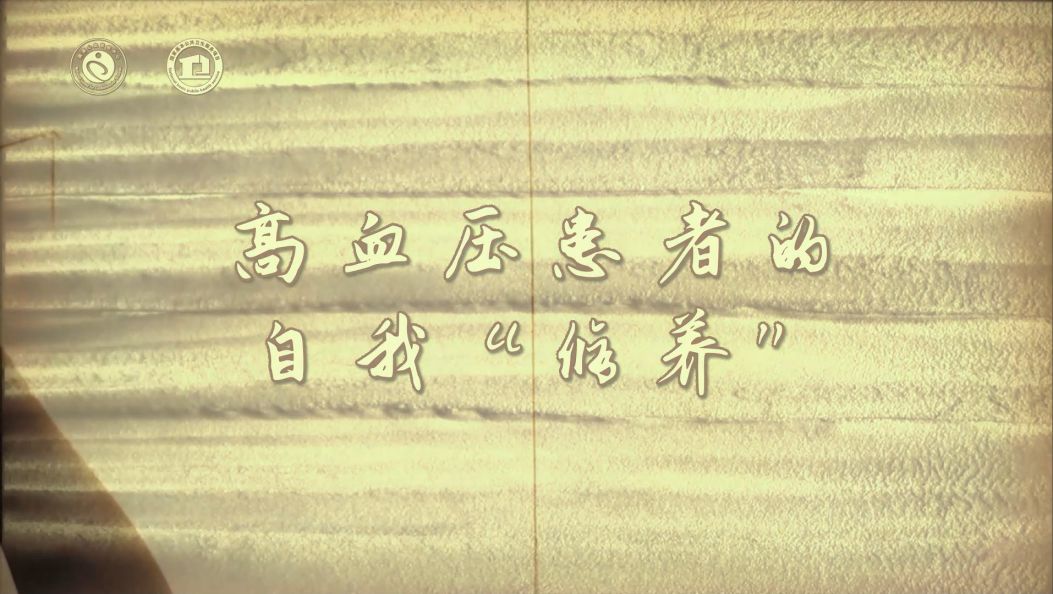 高血压患者的
自我“修养”